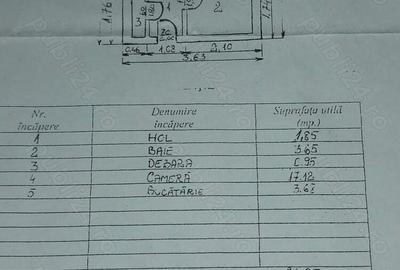 1.76
3
1
2
1.74
0.46
1.02
2.10
3.63
Nr. încăpere
Denumire încăpere
Suprafața utilă (mp.)
1 HOL 1,85
2 BAIE 3.65
3 DEBARA 0.95
4 CAMERĂ 17.12
5 BUCĂTĂRIE